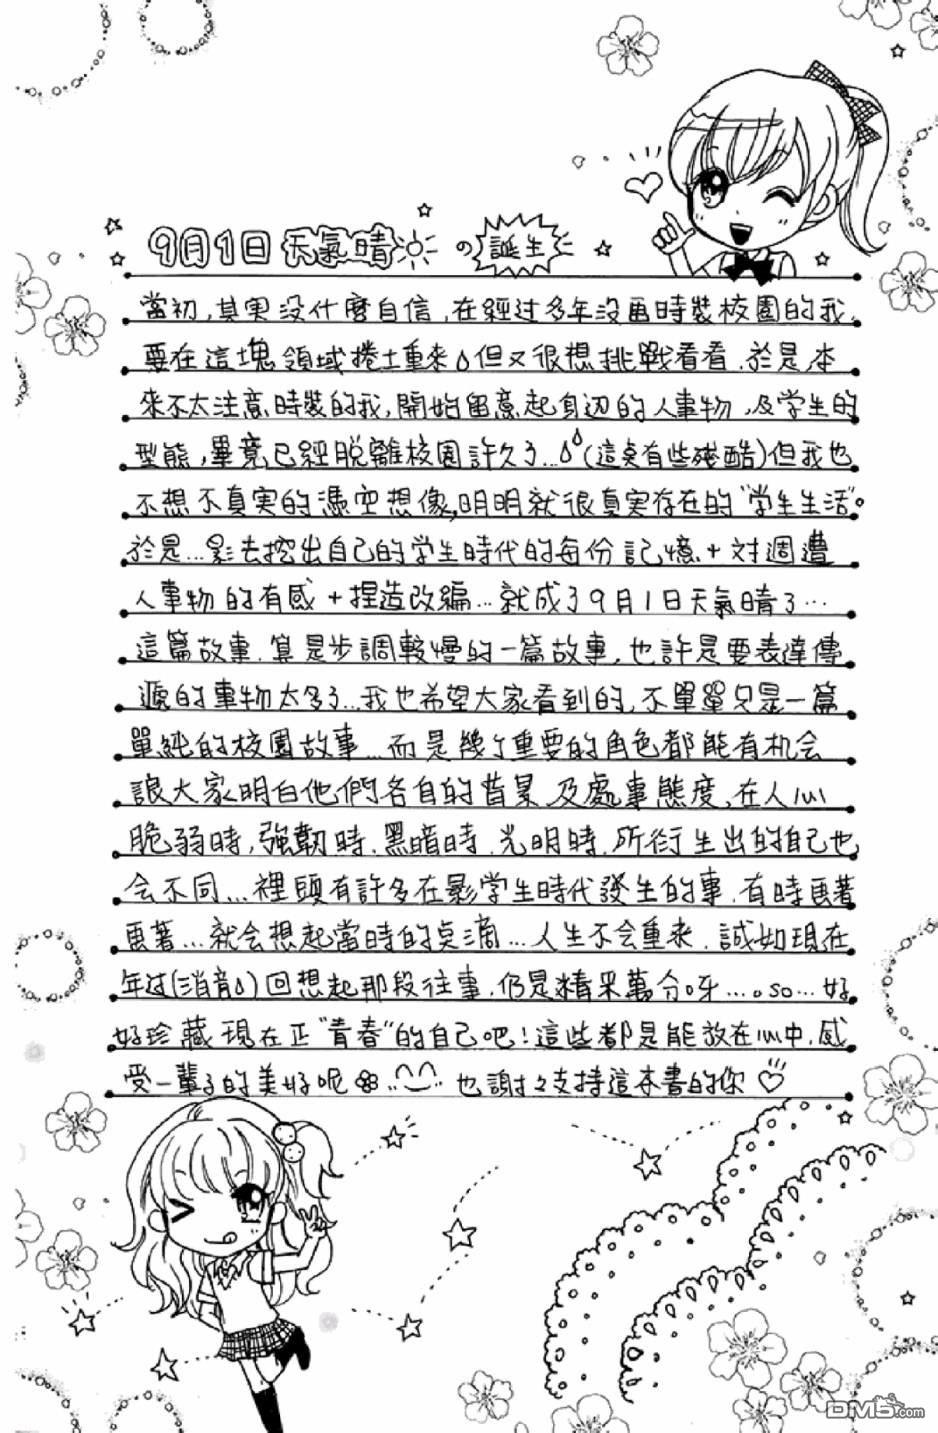 9月1日 天氣晴 の 誕生
當初,其実没什麼自信,在經过多年没画時裝校園的我,
要在這塊領域捲土重來 但又很想挑戰看看.於是,本
來不太注意時裝的我,開始留意起身边的人事物,及学生的
型態,畢竟已經脫離校園許久了...(這点有些殘酷)但我也
不想不真実的憑空想像,明明就很真実存在的"学生生活"。
於是...影去挖出自己的学生時代的每份記憶+对週遭
人事物的有感+捏造改編...就成了9月1日天氣晴了...
這篇故事.算是步調較慢的一篇故事,也許是要表達傳
遞的事物太多了...我也希望大家看到的,不單單只是一篇
單純的校園故事...而是幾个重要的角色都能有机会
讓大家明白他們各自的背景及處事態度,在人心
脆弱時,強韌時.黑暗時.光明時.所衍生出的自己也
会不同...裡頭有許多在影学生時代發生的事.有時画著
画著...就会想起當時的点滴...人生不会重來.誠如現在
年过(消音)回想起那段往事.仍是精采萬分呀....so...好
好珍藏現在正"青春"的自己吧!這些都是能放在心中,感
受一輩子的美好呢 也謝謝支持這本書的你♡
DM5.com